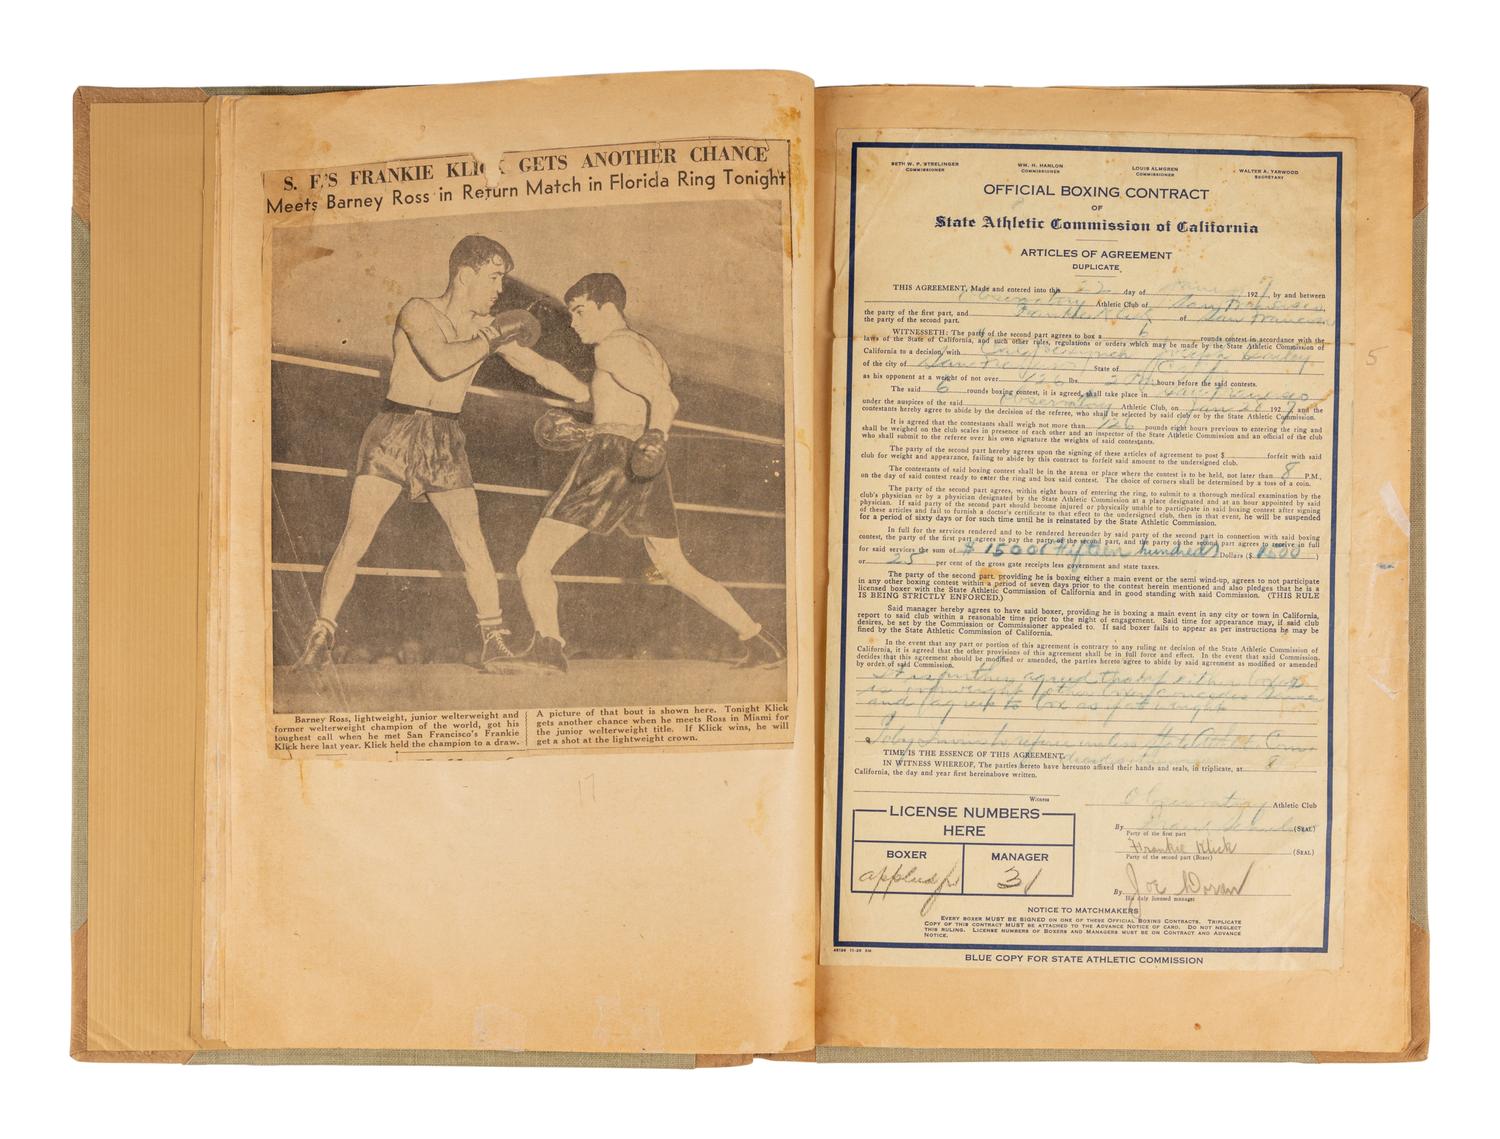 S. F.'S FRANKIE KLICK GETS ANOTHER CHANCE
Meets Barney Ross in Return Match in Florida Ring Tonight
Barney Ross, lightweight, junior welterweight and
former welterweight champion of the world, got his
toughest call when he met San Francisco's Frankie
Klick here last year. Klick held the champion to a draw.
A picture of that bout is shown here. Tonight Klick
gets another chance when he meets Ross in Miami for
the junior welterweight title. If Klick wins, he will
get a shot at the lightweight crown.
17
SETH W. P. STRELINGER
COMMISSIONER
WM. H. HANLON
COMMISSIONER
LOUIS ALMGREN
COMMISSIONER
WALTER A. YARWOOD
SECRETARY
OFFICIAL BOXING CONTRACT
OF
State Athletic Commission of California
ARTICLES OF AGREEMENT
DUPLICATE
THIS AGREEMENT, Made and entered into this 22 day of 192 , by and between
Observatory Athletic Club of San Francisco,
the party of the first part, and Frankie Klick of San Francisco
the party of the second part.
WITNESSETH: The party of the second part agrees to box a 6 rounds contest in accordance with the
laws of the State of California, and such other rules, regulations or orders which may be made by the State Athletic Commission of
California to a decision, with
of the city of San Francisco State of Calif
as his opponent at a weight of not over 126 lbs. hours before the said contests.
The said 6 rounds boxing contest, it is agreed, shall take place in San Francisco
under the auspices of the said Observatory Athletic Club, on Jan 28 192 9 and the
contestants hereby agree to abide by the decision of the referee, who shall be selected by said club or by the State Athletic Commission.
It is agreed that the contestants shall weigh not more than 126 pounds eight hours previous to entering the ring and
shall be weighed on the club scales in presence of each other and an inspector of the State Athletic Commission and an official of the club
who shall submit to the referee over his own signature the weights of said contestants.
The party of the second part hereby agrees upon the signing of these articles of agreement to post $ forfeit with said
club for weight and appearance, failing to abide by this contract to forfeit said amount to the undersigned club.
The contestants of said boxing contest shall be in the arena or place where the contest is to be held, not later than 8 P.M.,
on the day of said contest ready to enter the ring and box said contest. The choice of corners shall be determined by a toss of a coin.
The party of the second part agrees, within eight hours of entering the ring, to submit to a thorough medical examination by the
club's physician or by a physician designated by the State Athletic Commission at a place designated and at an hour appointed by said
physician. If said party of the second part should become injured or physically unable to participate in said boxing contest after signing
of these articles and fail to furnish a doctor's certificate to that effect to the undersigned club, then in that event, he will be suspended
for a period of sixty days or for such time until he is reinstated by the State Athletic Commission.
In full for the services rendered and to be rendered hereunder by said party of the second part in connection with said boxing
contest, the party of the first part agrees to pay the party of the second part, and the party of the second part agrees to receive in full
for said services the sum of $ 1500 Fifteen hundred Dollars ($ 1500 )
or 25 per cent of the gross gate receipts less government and state taxes.
The party of the second part, providing he is boxing either a main event or the semi wind-up, agrees to not participate
in any other boxing contest within a period of seven days prior to the contest herein mentioned and also pledges that he is a
licensed boxer with the State Athletic Commission of California and in good standing with said Commission. (THIS RULE
IS BEING STRICTLY ENFORCED.)
Said manager hereby agrees to have said boxer, providing he is boxing a main event in any city or town in California,
report to said club within a reasonable time prior to the night of engagement. Said time for appearance may, if said club
desires, be set by the Commission or Commissioner appealed to. If said boxer fails to appear as per instructions he may be
fined by the State Athletic Commission of California.
In the event that any part or portion of this agreement is contrary to any ruling or decision of the State Athletic Commission of
California, it is agreed that the other provisions of this agreement shall be in full force and effect. In the event that said Commission
decides that this agreement should be modified or amended, the parties hereto agree to abide by said agreement as modified or amended
by order of said Commission.
It is further agreed that if either boxer
is overweight other boxer
and agrees to box as
TIME IS THE ESSENCE OF THIS AGREEMENT.
IN WITNESS WHEREOF, The parties hereto have hereunto affixed their hands and seals, in triplicate, at
California, the day and year first hereinabove written.
Witness
Observatory Athletic Club
By Frank (SEAL)
Party of the first part
Frankie Klick (SEAL)
Party of the second part (Boxer)
By Joe Doran
His duly licensed manager
LICENSE NUMBERS
HERE
BOXER
MANAGER
applied for
31
NOTICE TO MATCHMAKERS
EVERY BOXER MUST BE SIGNED ON ONE OF THESE OFFICIAL BOXING CONTRACTS. TRIPLICATE
COPY OF THIS CONTRACT MUST BE ATTACHED TO THE ADVANCE NOTICE OF CARD. DO NOT NEGLECT
THIS RULING. LICENSE NUMBERS OF BOXERS AND MANAGERS MUST BE ON CONTRACT AND ADVANCE
NOTICE.
BLUE COPY FOR STATE ATHLETIC COMMISSION
5